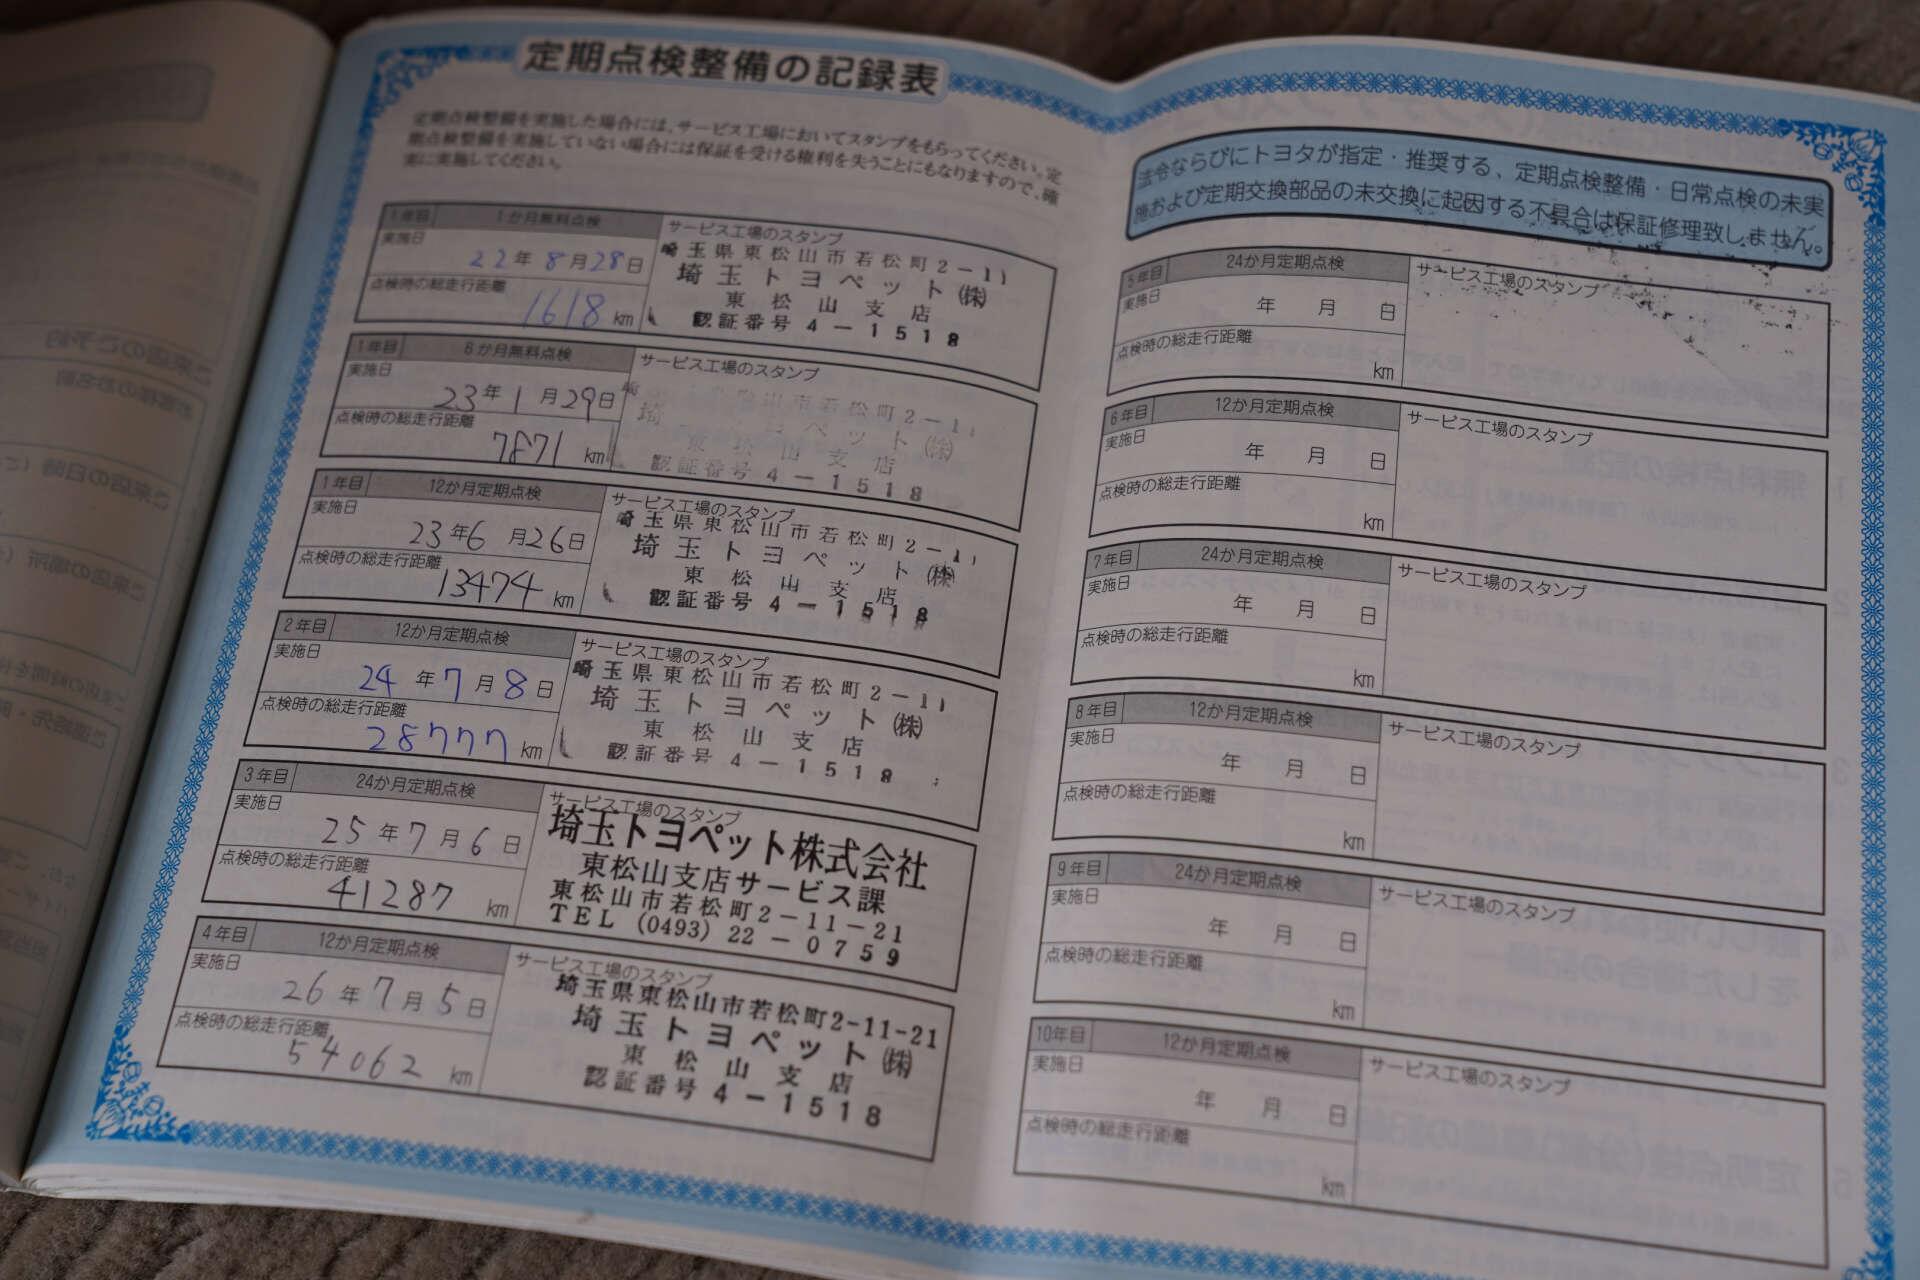 定期点検整備の記録表
定期点検整備を実施した場合には、サービス工場においてスタンプをもらってください。定
期点検整備を実施していない場合には保証を受ける権利を失うことにもなりますので、確
実に実施してください。
1年目 1か月無料点検
実施日
22年 8月28日
点検時の総走行距離
1618 km
サービス工場のスタンプ
埼玉県東松山市若松町2-11
埼玉トヨペット(株)
東松山支店
認証番号4-1518
1年目 6か月無料点検
実施日
23年 1月29日
点検時の総走行距離
7871 km
サービス工場のスタンプ
山市若松町2-1
埼 ヨペット(株)
東松山支店
認証番号4-1518
1年目 12か月定期点検
実施日
23年6月26日
点検時の総走行距離
13474 km
サービス工場のスタンプ
埼玉県東松山市若松町2-11
埼玉トヨペット(株)
東松山支店
認証番号4-1518
2年目 12か月定期点検
実施日
24年7月8日
点検時の総走行距離
28777 km
サービス工場のスタンプ
埼玉県東松山市若松町2-11
埼玉トヨペット(株)
東松山支店
認証番号4-1518
3年目 24か月定期点検
実施日
25年7月6日
点検時の総走行距離
41287 km
サービス工場のスタンプ
埼玉トヨペット株式会社
東松山支店サービス課
東松山市若松町2-11-21
TEL (0493) 22-0759
4年目 12か月定期点検
実施日
26年7月5日
点検時の総走行距離
54062 km
サービス工場のスタンプ
埼玉県東松山市若松町2-11-21
埼玉トヨペット(株)
東松山支店
認証番号4-1518
法令ならびにトヨタが指定・推奨する、定期点検整備・日常点検の未実
施および定期交換部品の未交換に起因する不具合は保証修理致しません。
5年目 24か月定期点検
実施日
年 月 日
点検時の総走行距離
km
サービス工場のスタンプ
6年目 12か月定期点検
実施日
年 月 日
点検時の総走行距離
km
サービス工場のスタンプ
7年目 24か月定期点検
実施日
年 月 日
点検時の総走行距離
km
サービス工場のスタンプ
8年目 12か月定期点検
実施日
年 月 日
点検時の総走行距離
km
サービス工場のスタンプ
9年目 24か月定期点検
実施日
年 月 日
点検時の総走行距離
km
サービス工場のスタンプ
10年目 12か月定期点検
実施日
年 月 日
点検時の総走行距離
km
サービス工場のスタンプ